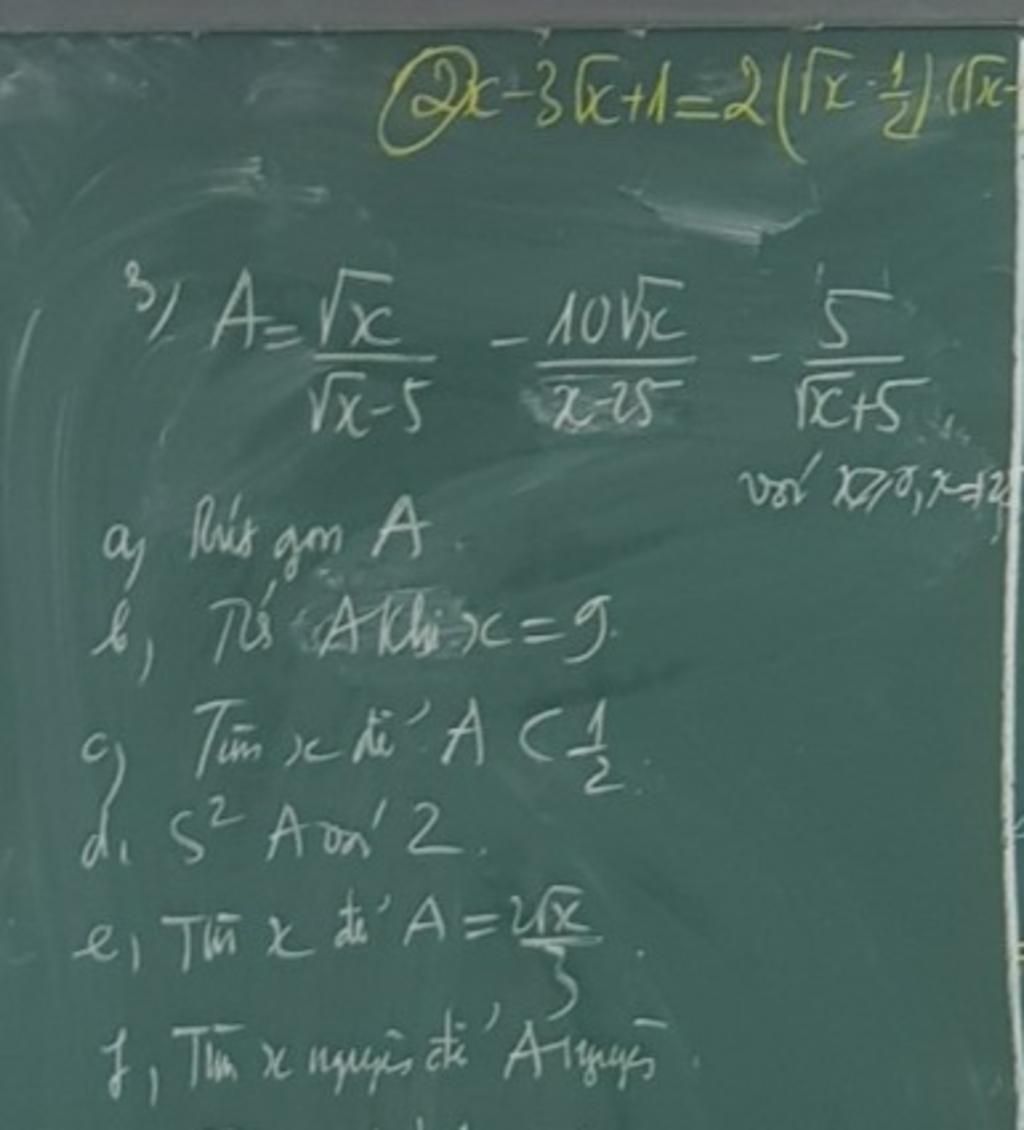 2x-3√x+1=2(√x-1/2).(√x-
3) A=√x/(√x-5) - 10√x/(x-25) - 5/(√x+5)
với x≥0, x≠25
a) Rút gọn A
b, A khi x=9.
c) Tìm x để A < 1/2.
d, S² A với 2.
e, Tìm x để A = 2√x/3.
f, Tìm x nguyên để A nguyên.